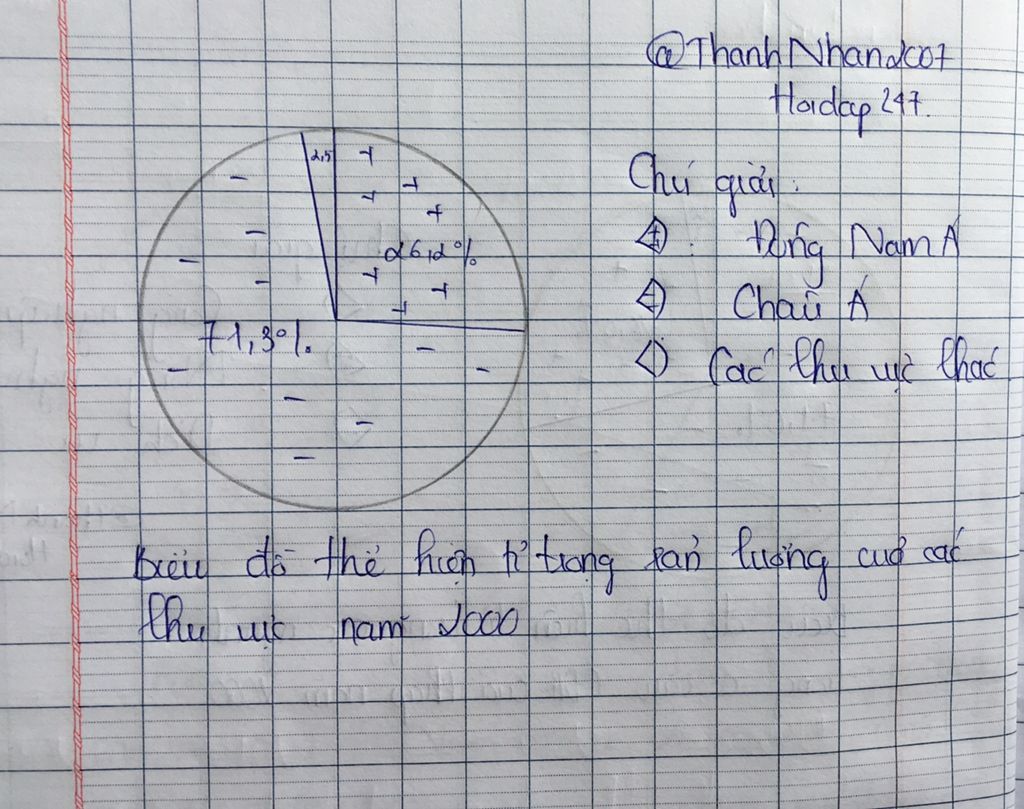 @ThanhNhan2007
Hoidap247.
2,5
26,2%
71,3%.
Chú giải:
Đông Nam Á
Châu Á
Các khu vực khác
Biểu đồ thể hiện tỉ trọng sản lượng của các
khu vực năm 2000